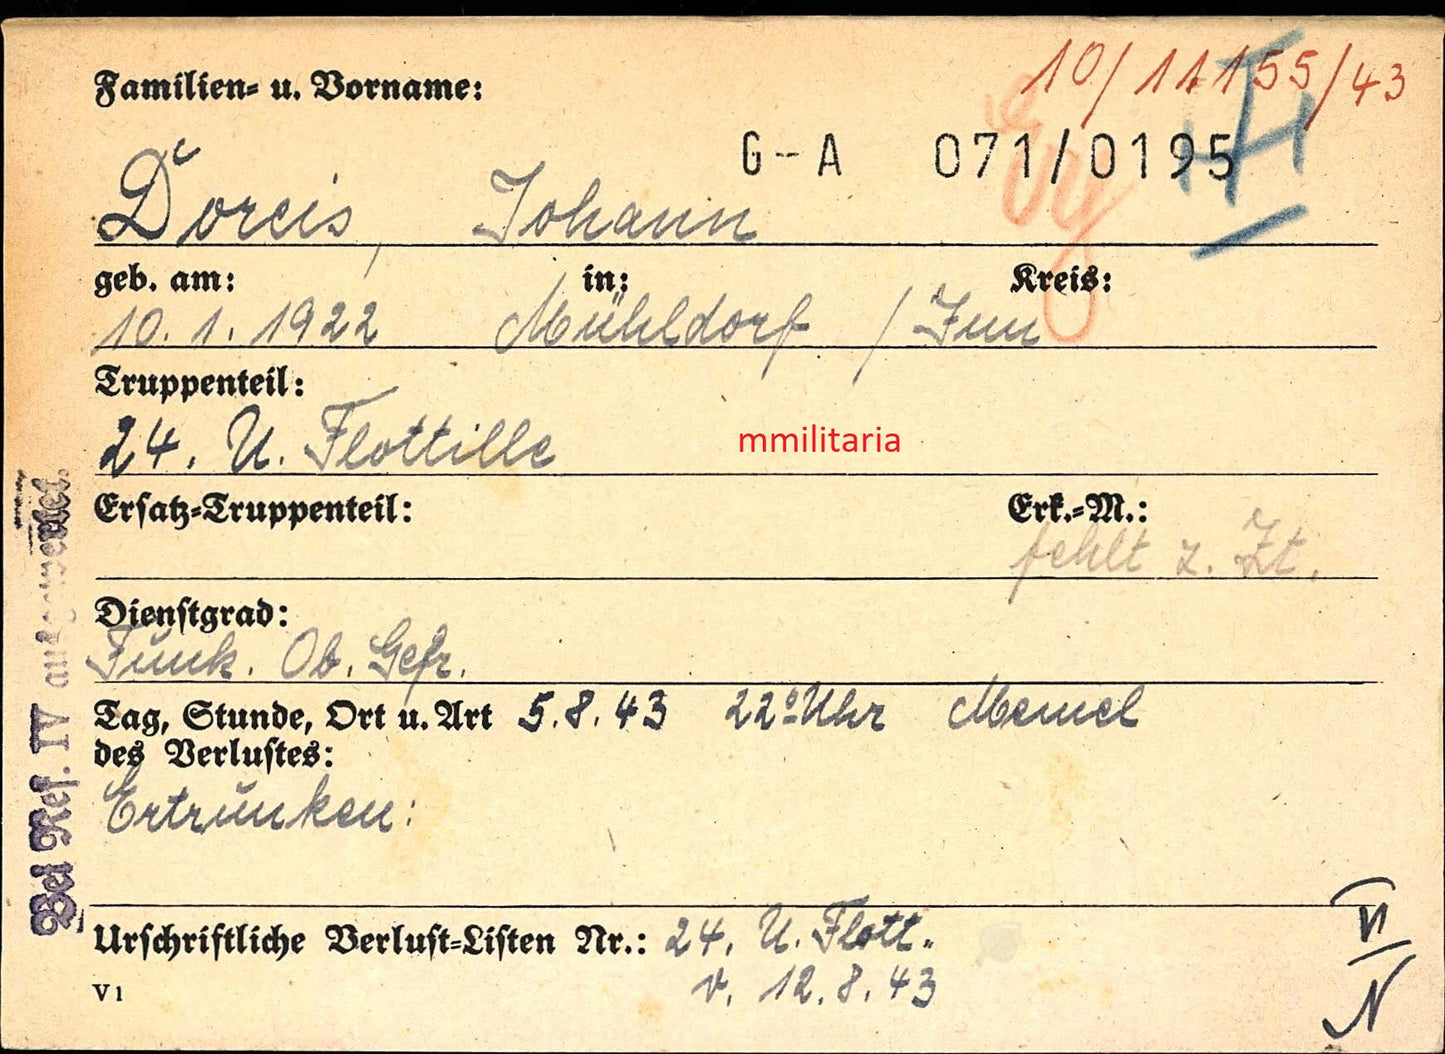 10/11155/43
Familien- u. Vorname:
G-A 071/0195
Doreis, Johann
geb. am: in: Kreis:
10.1.1922 Mühldorf / Inn
Truppenteil:
24. U. Flottille
mmilitaria
Ersatz-Truppenteil: Erk.-M.:
fehlt z. Zt.
Dienstgrad:
Funk. Ob. Gefr.
Tag, Stunde, Ort u. Art 5.8.43 22º Uhr Memel
des Verlustes:
Ertrunken:
Urschriftliche Verlust-Listen Nr.: 24. U. Flott.
V1 v. 12.8.43
Bei Ref. IV ausgewertet.